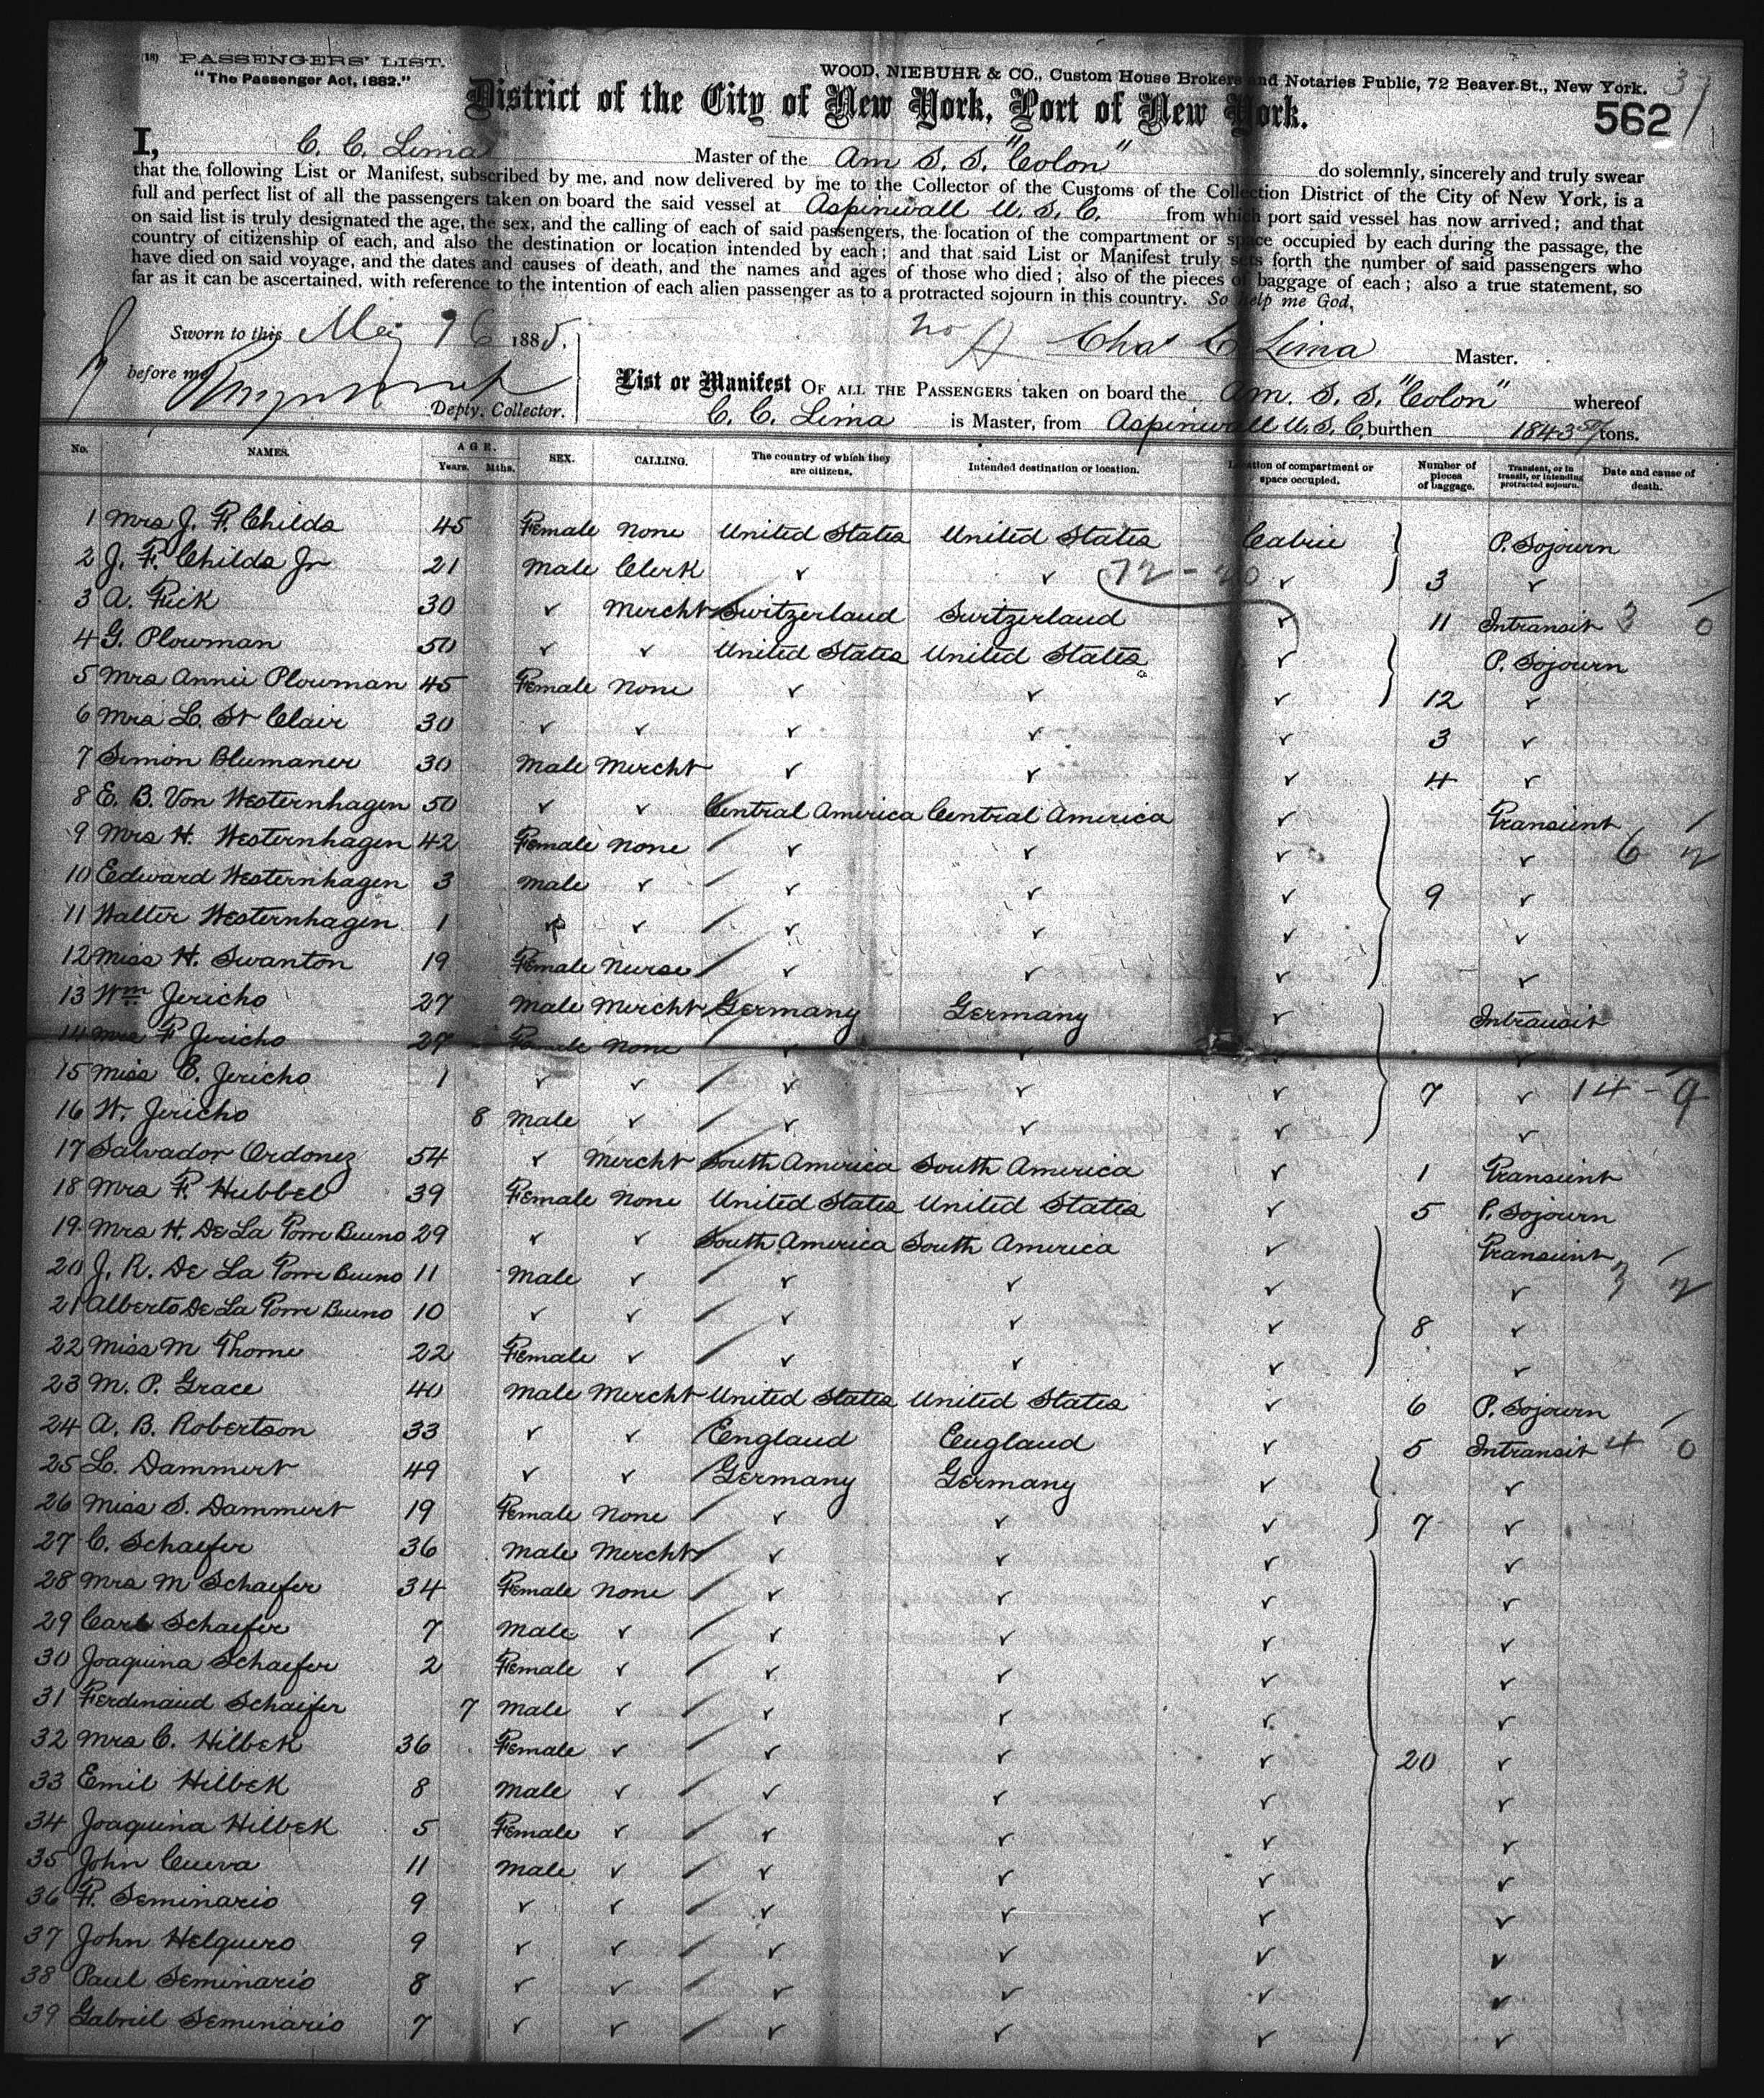 (18) PASSENGERS' LIST.
"The Passenger Act, 1882."
WOOD, NIEBUHR & CO., Custom House Brokers and Notaries Public, 72 Beaver St., New York. 37
District of the City of New York, Port of New York.
562
I, C. C. Lima Master of the Am S. S. "Colon" do solemnly, sincerely and truly swear
that the following List or Manifest, subscribed by me, and now delivered by me to the Collector of the Customs of the Collection District of the City of New York, is a
full and perfect list of all the passengers taken on board the said vessel at Aspinwall U. S. C. from which port said vessel has now arrived; and that
on said list is truly designated the age, the sex, and the calling of each of said passengers, the location of the compartment or space occupied by each during the passage, the
country of citizenship of each, and also the destination or location intended by each; and that said List or Manifest truly sets forth the number of said passengers who
have died on said voyage, and the dates and causes of death, and the names and ages of those who died; also of the pieces of baggage of each; also a true statement, so
far as it can be ascertained, with reference to the intention of each alien passenger as to a protracted sojourn in this country. So help me God,
Sworn to this May 16 1885.
no Chas C Lima Master.
before me
Depty. Collector.
List or Manifest OF ALL THE PASSENGERS taken on board the Am. S. S. "Colon" whereof
C. C. Lima is Master, from Aspinwall U. S. C. burthen 1843 tons.
No. NAMES. AGE. Years. Mths. SEX. CALLING. The country of which they are citizens. Intended destination or location. Location of compartment or space occupied. Number of pieces of baggage. Transient, or in transit, or intending protracted sojourn. Date and cause of death.
1 Mrs J. F. Childs 45 Female None United States United States Cabin P. Sojourn
2 J. F. Childs Jr 21 Male Clerk ✓ ✓ 72-20 ✓ 3 ✓
3 A. Rick 30 ✓ Mercht Switzerland Switzerland ✓ 11 Intransit 3 0
4 G. Plowman 50 ✓ ✓ United States United States ✓ P. Sojourn
5 Mrs Annie Plowman 45 Female None ✓ ✓ ✓ 12 ✓
6 Mrs L. St Clair 30 ✓ ✓ ✓ ✓ ✓ 3 ✓
7 Simon Blumaner 30 Male Mercht ✓ ✓ ✓ 4 ✓
8 E. B. Von Westernhagen 50 ✓ ✓ Central America Central America ✓ Transient
9 Mrs H. Westernhagen 42 Female None ✓ ✓ ✓ ✓ 6 2
10 Edward Westernhagen 3 Male ✓ ✓ ✓ ✓ 9 ✓
11 Walter Westernhagen 1 ✓ ✓ ✓ ✓ ✓ ✓
12 Miss H. Swanton 19 Female Nurse ✓ ✓ ✓ ✓
13 Wm Jericho 27 Male Mercht Germany Germany ✓ Intransit
14 Mrs F Jericho 27 Female None ✓ ✓ ✓ ✓
15 Miss E. Jericho 1 ✓ ✓ ✓ ✓ ✓ 7 ✓ 14-9
16 W. Jericho 8 Male ✓ ✓ ✓ ✓ ✓
17 Salvador Ordonez 54 ✓ Mercht South America South America ✓ 1 Transient
18 Mrs F. Hubbel 39 Female None United States United States ✓ 5 P. Sojourn
19 Mrs H. De La Torre Bueno 29 ✓ ✓ South America South America ✓ Transient
20 J. R. De La Torre Bueno 11 Male ✓ ✓ ✓ ✓ ✓ 3 2
21 Alberto De La Torre Bueno 10 ✓ ✓ ✓ ✓ ✓ 8 ✓
22 Miss M Thorne 22 Female ✓ ✓ ✓ ✓ ✓
23 M. P. Grace 40 Male Mercht United States United States ✓ 6 P. Sojourn
24 A. B. Robertson 33 ✓ ✓ England England ✓ 5 Intransit 4 0
25 L. Dammert 49 ✓ ✓ Germany Germany ✓ ✓
26 Miss S. Dammert 19 Female None ✓ ✓ ✓ 7 ✓
27 C. Schaefer 36 Male Mercht ✓ ✓ ✓ ✓
28 Mrs M Schaefer 34 Female None ✓ ✓ ✓ ✓
29 Carl Schaefer 7 Male ✓ ✓ ✓ ✓ ✓
30 Joaquina Schaefer 2 Female ✓ ✓ ✓ ✓ ✓
31 Ferdinand Schaefer 7 Male ✓ ✓ ✓ ✓ ✓
32 Mrs C. Hilbek 36 Female ✓ ✓ ✓ ✓ 20 ✓
33 Emil Hilbek 8 Male ✓ ✓ ✓ ✓ ✓
34 Joaquina Hilbek 5 Female ✓ ✓ ✓ ✓ ✓
35 John Cueva 11 Male ✓ ✓ ✓ ✓ ✓
36 F. Seminario 9 ✓ ✓ ✓ ✓ ✓ ✓
37 John Helguero 9 ✓ ✓ ✓ ✓ ✓ ✓
38 Paul Seminario 8 ✓ ✓ ✓ ✓ ✓ ✓
39 Gabriel Seminario 7 ✓ ✓ ✓ ✓ ✓ ✓